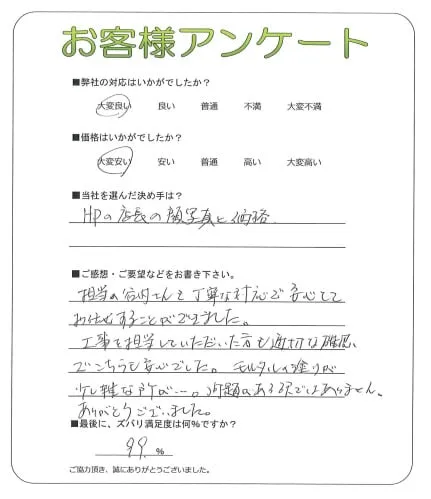 お客様アンケート
■弊社の対応はいかがでしたか？
大変良い 良い 普通 不満 大変不満
■価格はいかがでしたか？
大変安い 安い 普通 高い 大変高い
■当社を選んだ決め手は？
HPの店長の顔写真と価格
■ご感想・ご要望などをお書き下さい。
担当の さんも丁寧な対応で安心して
お任せすることができました。
工事を担当していただいた方も適切な確認
でこちらも安心でした。モルタルの塗りが
少し雑な所が…。問題のある訳ではありません。
ありがとうございました。
■最後に、ズバリ満足度は何%ですか？
99 %
ご協力頂き、誠にありがとうございました。